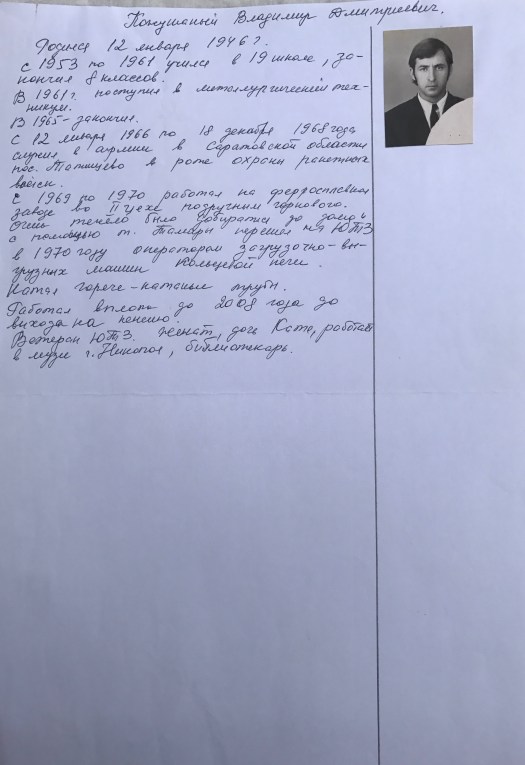 Кокушаный Владимир Дмитриевич.
Родился 12 января 1946 г.
С 1953 по 1961 учился в 19 школе, за-
кончил 8 классов.
В 1961 г. поступил в металлургический тех-
никум.
В 1965 - закончил.
С 12 января 1966 по 18 декабря 1968 года
служил в армии в Саратовской области
пос. Татищево в роте охраны ракетных
войск.
С 1969 по 1970 работал на ферросплавном
заводе во II цехе подручным горнового.
Очень тяжело было добираться до завода
с помощью т. Тамары перешёл на ЮТЗ
в 1970 году оператором загрузочно-вы-
грузных машин кольцевой печи.
Катал горяче-катаные трубы.
Работал вплоть до 2008 года до
выхода на пенсию.
Ветеран ЮТЗ. Женат, дочь Катя, работает
в музее г. Никополя, библиотекарь.